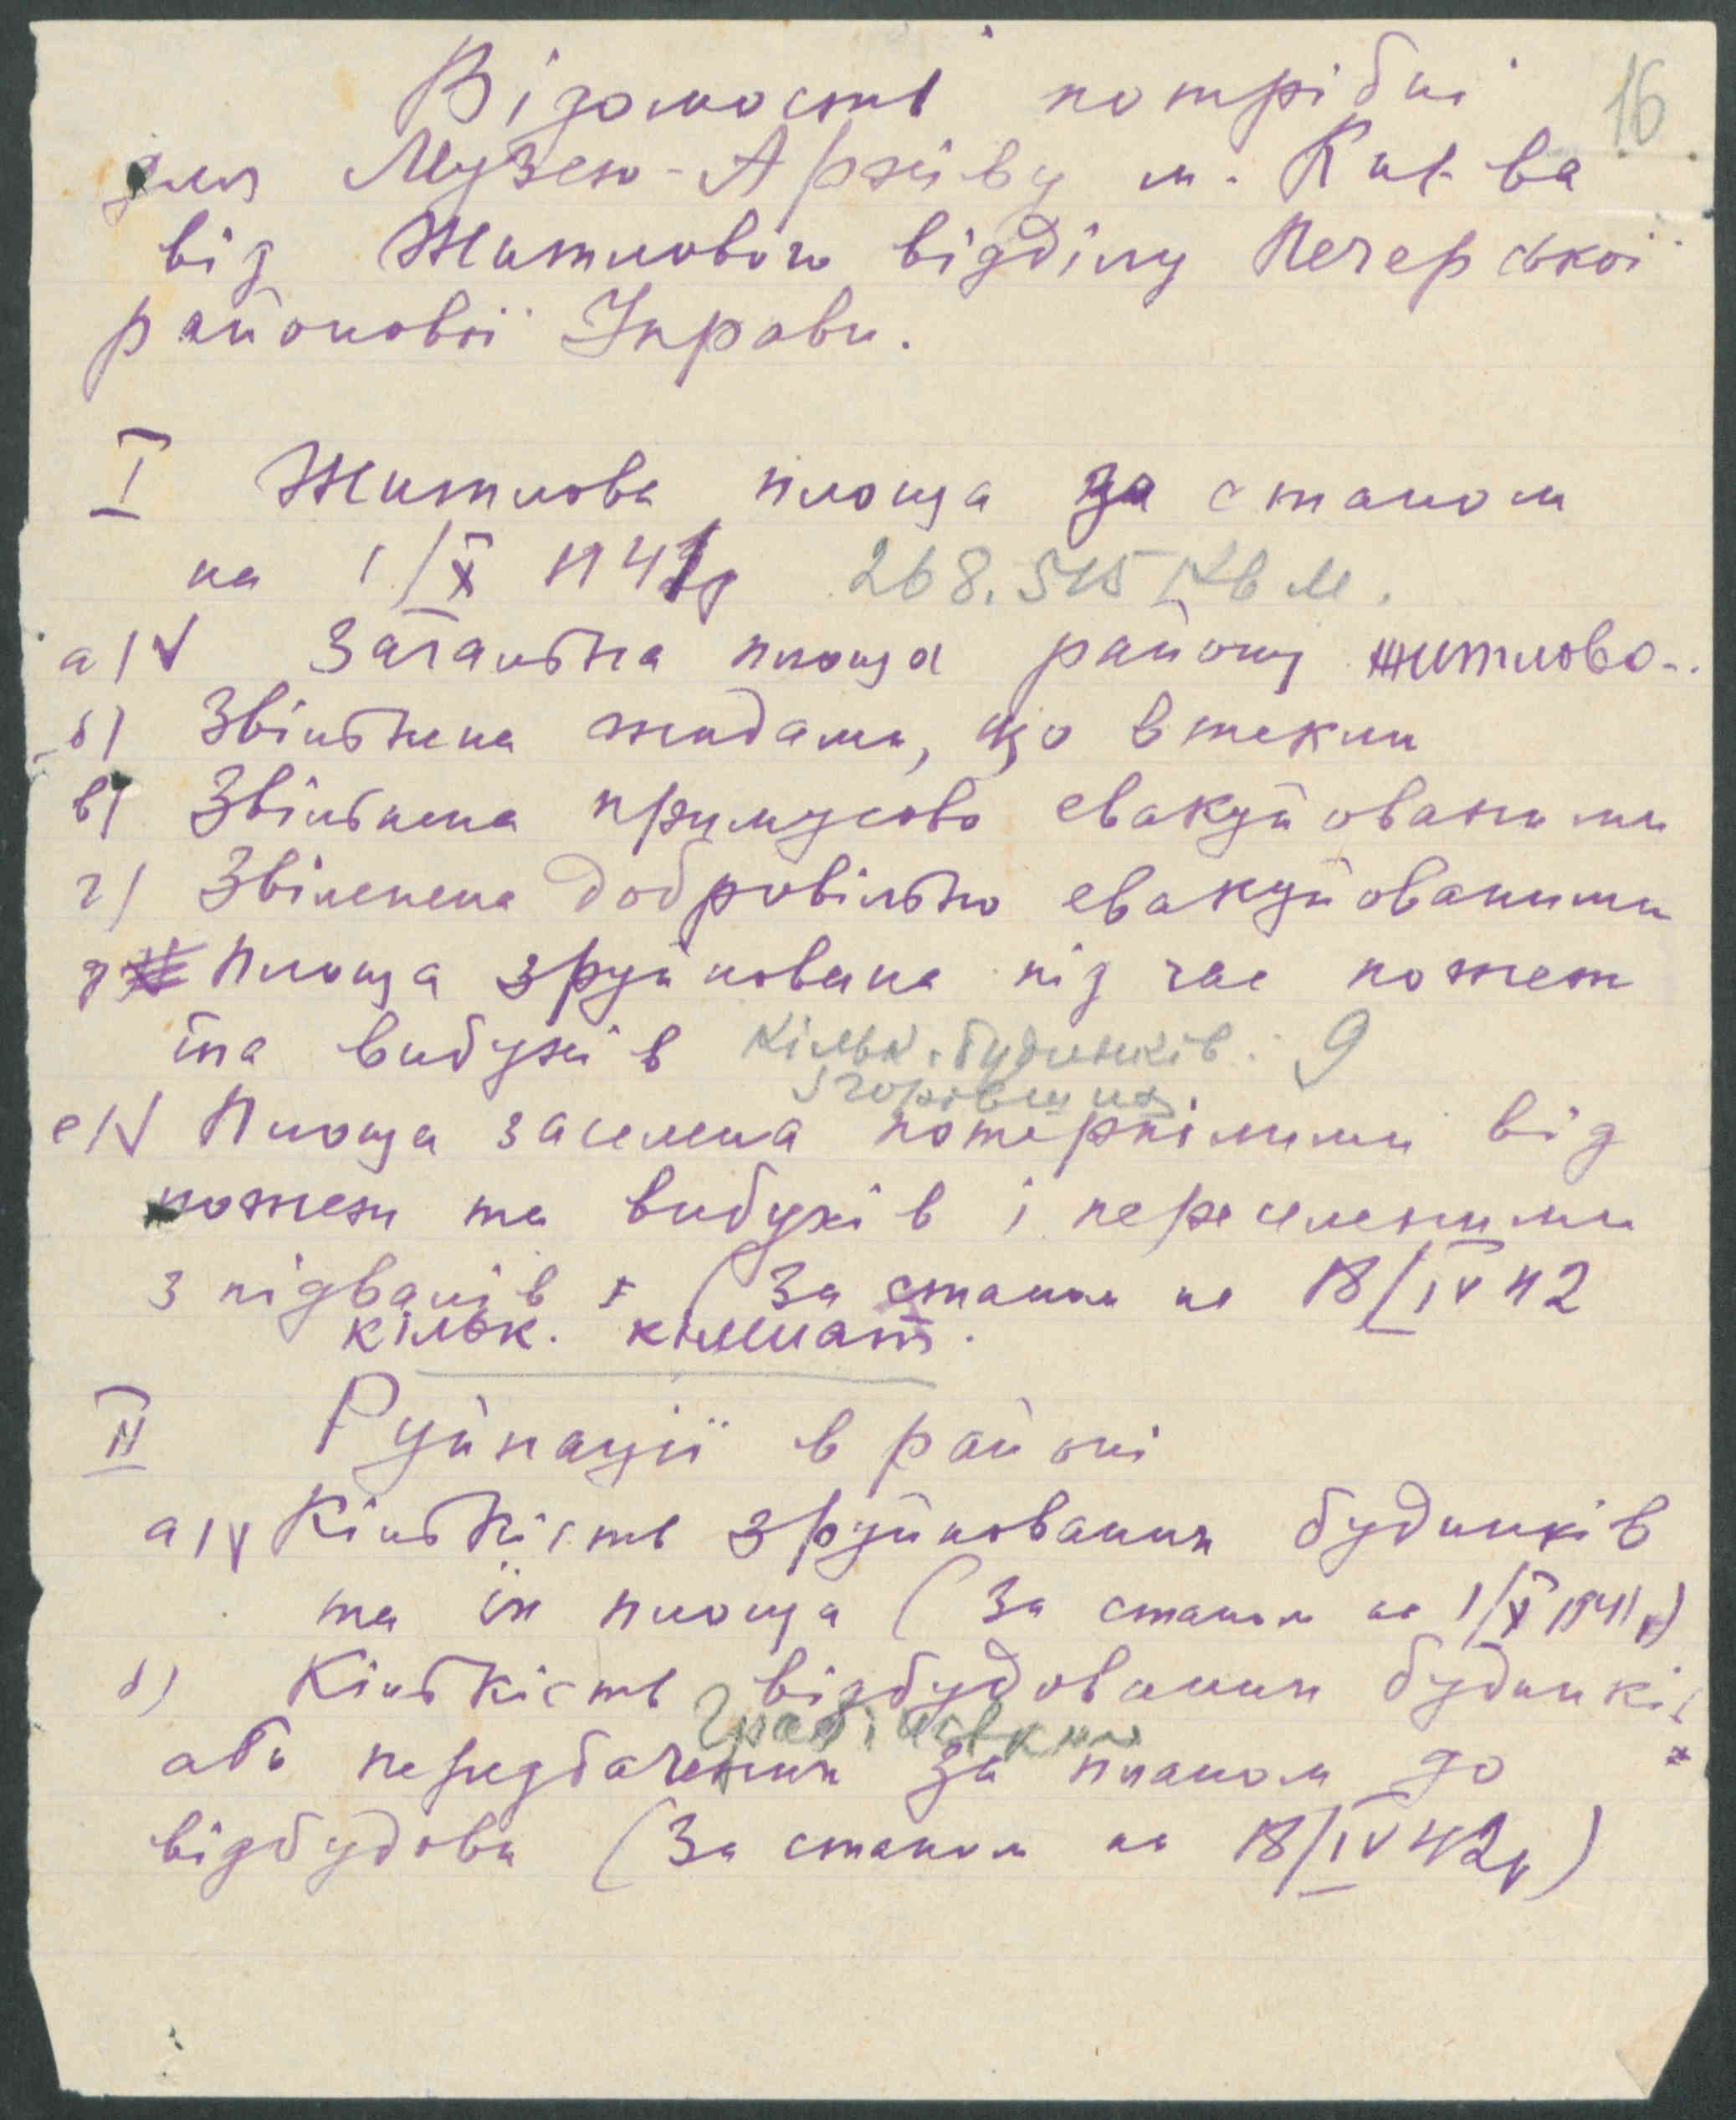 16
Відомості потрібні
для Музею-Архіву м. Києва
від Житлового відділу Печерської
районової Управи.
I Житлова площа за станом
на 1/X 1941р 268.515 кв м.
а) V Загальна площа району житлова.
б) Звільнена жидами, що втекли
в) Звільнена примусово евакуйованими
г) Звільнена добровільно евакуйованими
д) Площа зруйнована під час пожеж
та вибухів кільк. будинків: 9
згорівших
е) V Площа заселена потерпілими від
пожеж та вибухів і переселеними
з підвалів (За станом на 18/IV 42
кільк. кімнат.
II Руйнації в районі
а) V Кількість зруйнованих будинків
та їх площа (За станом на 1/X 1941р)
б) Кількість відбудованих будинків
або передбачених за планом до
відбудови (За станом на 18/IV 42р)